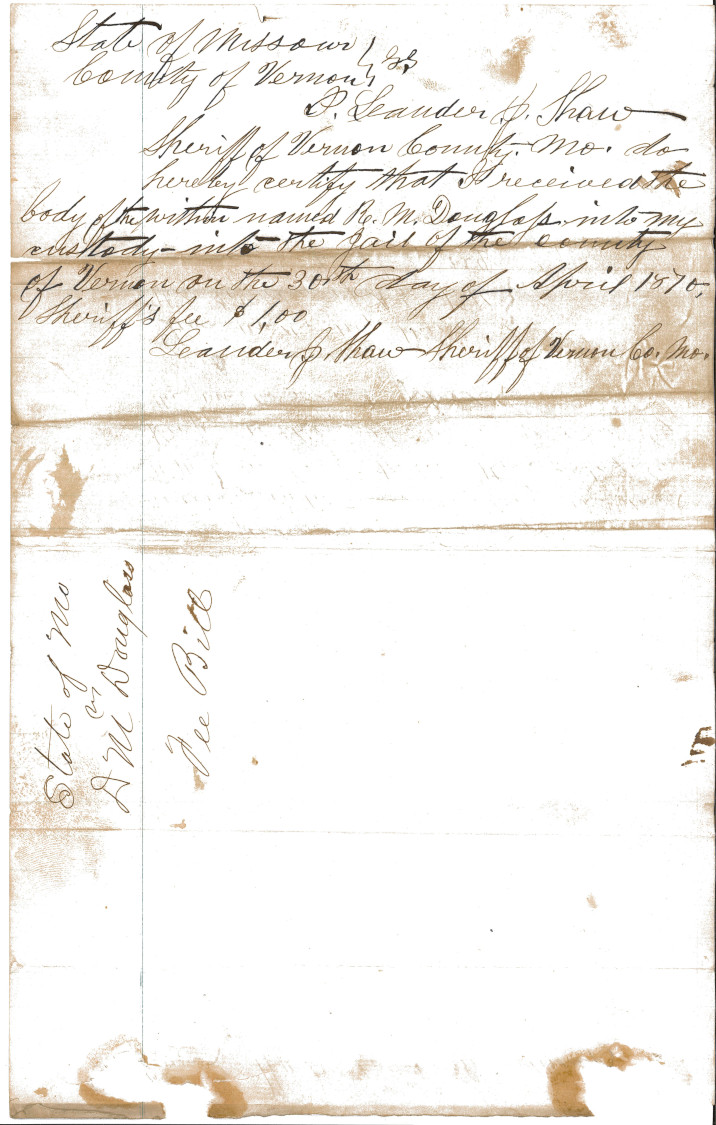 State of Missouri } ss
County of Vernon
I. Leander J. Shaw
Sheriff of Vernon County. Mo. do
hereby certify that I received the
body of the within named R. M. Douglass into my
custody into the Jail of the county
of Vernon on the 30th day of April 1870,
Sheriff's fee $1,00
Leander J. Shaw Sheriff of Vernon Co. Mo.
State of Mo
vs
D M Douglass
Fee Bill